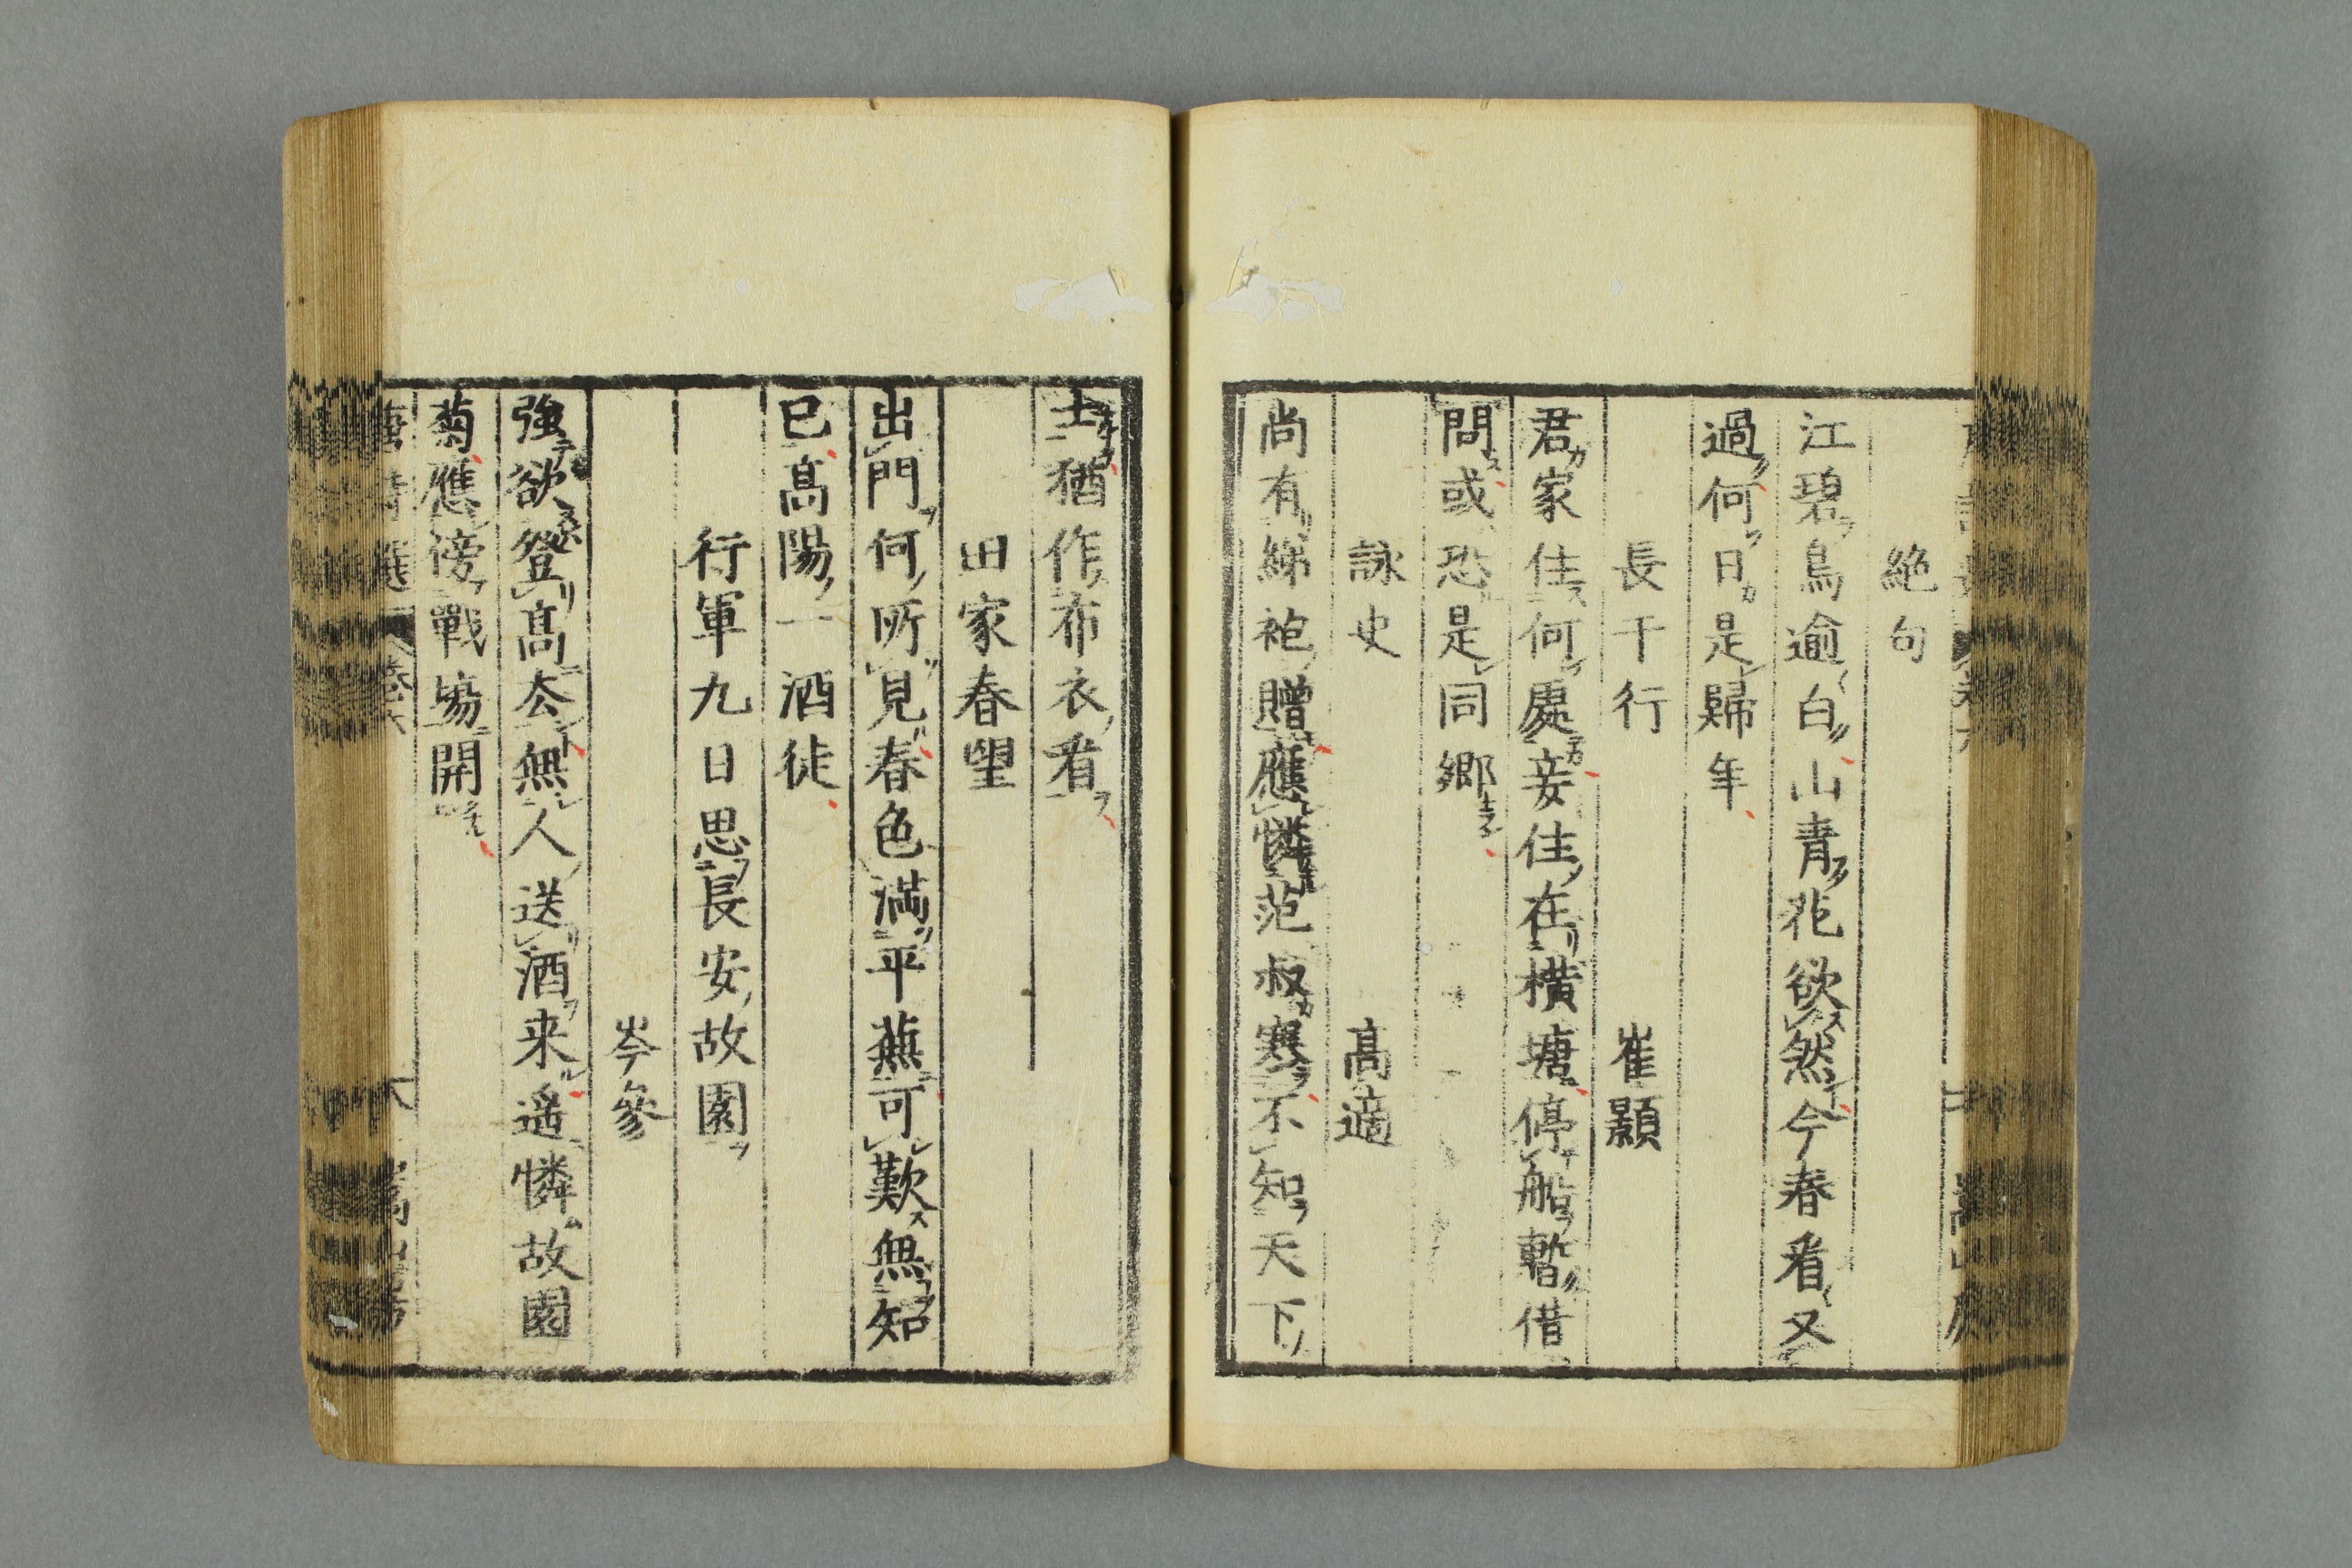 絶句
江碧鳥逾白山青花欲然今春看又
過何日是歸年
長干行
崔顥
君家住何處妾住在橫塘停船暫借
問或恐是同鄉
詠史
高適
尚有綈袍贈應憐范叔寒不知天下
士猶作布衣看
田家春望
出門何所見春色満平蕪可歎無知
已高陽一酒徒
行軍九日思長安故園
岑參
強欲登高去無人送酒来遥憐故園
菊應傍戰場開
唐詩選 卷六